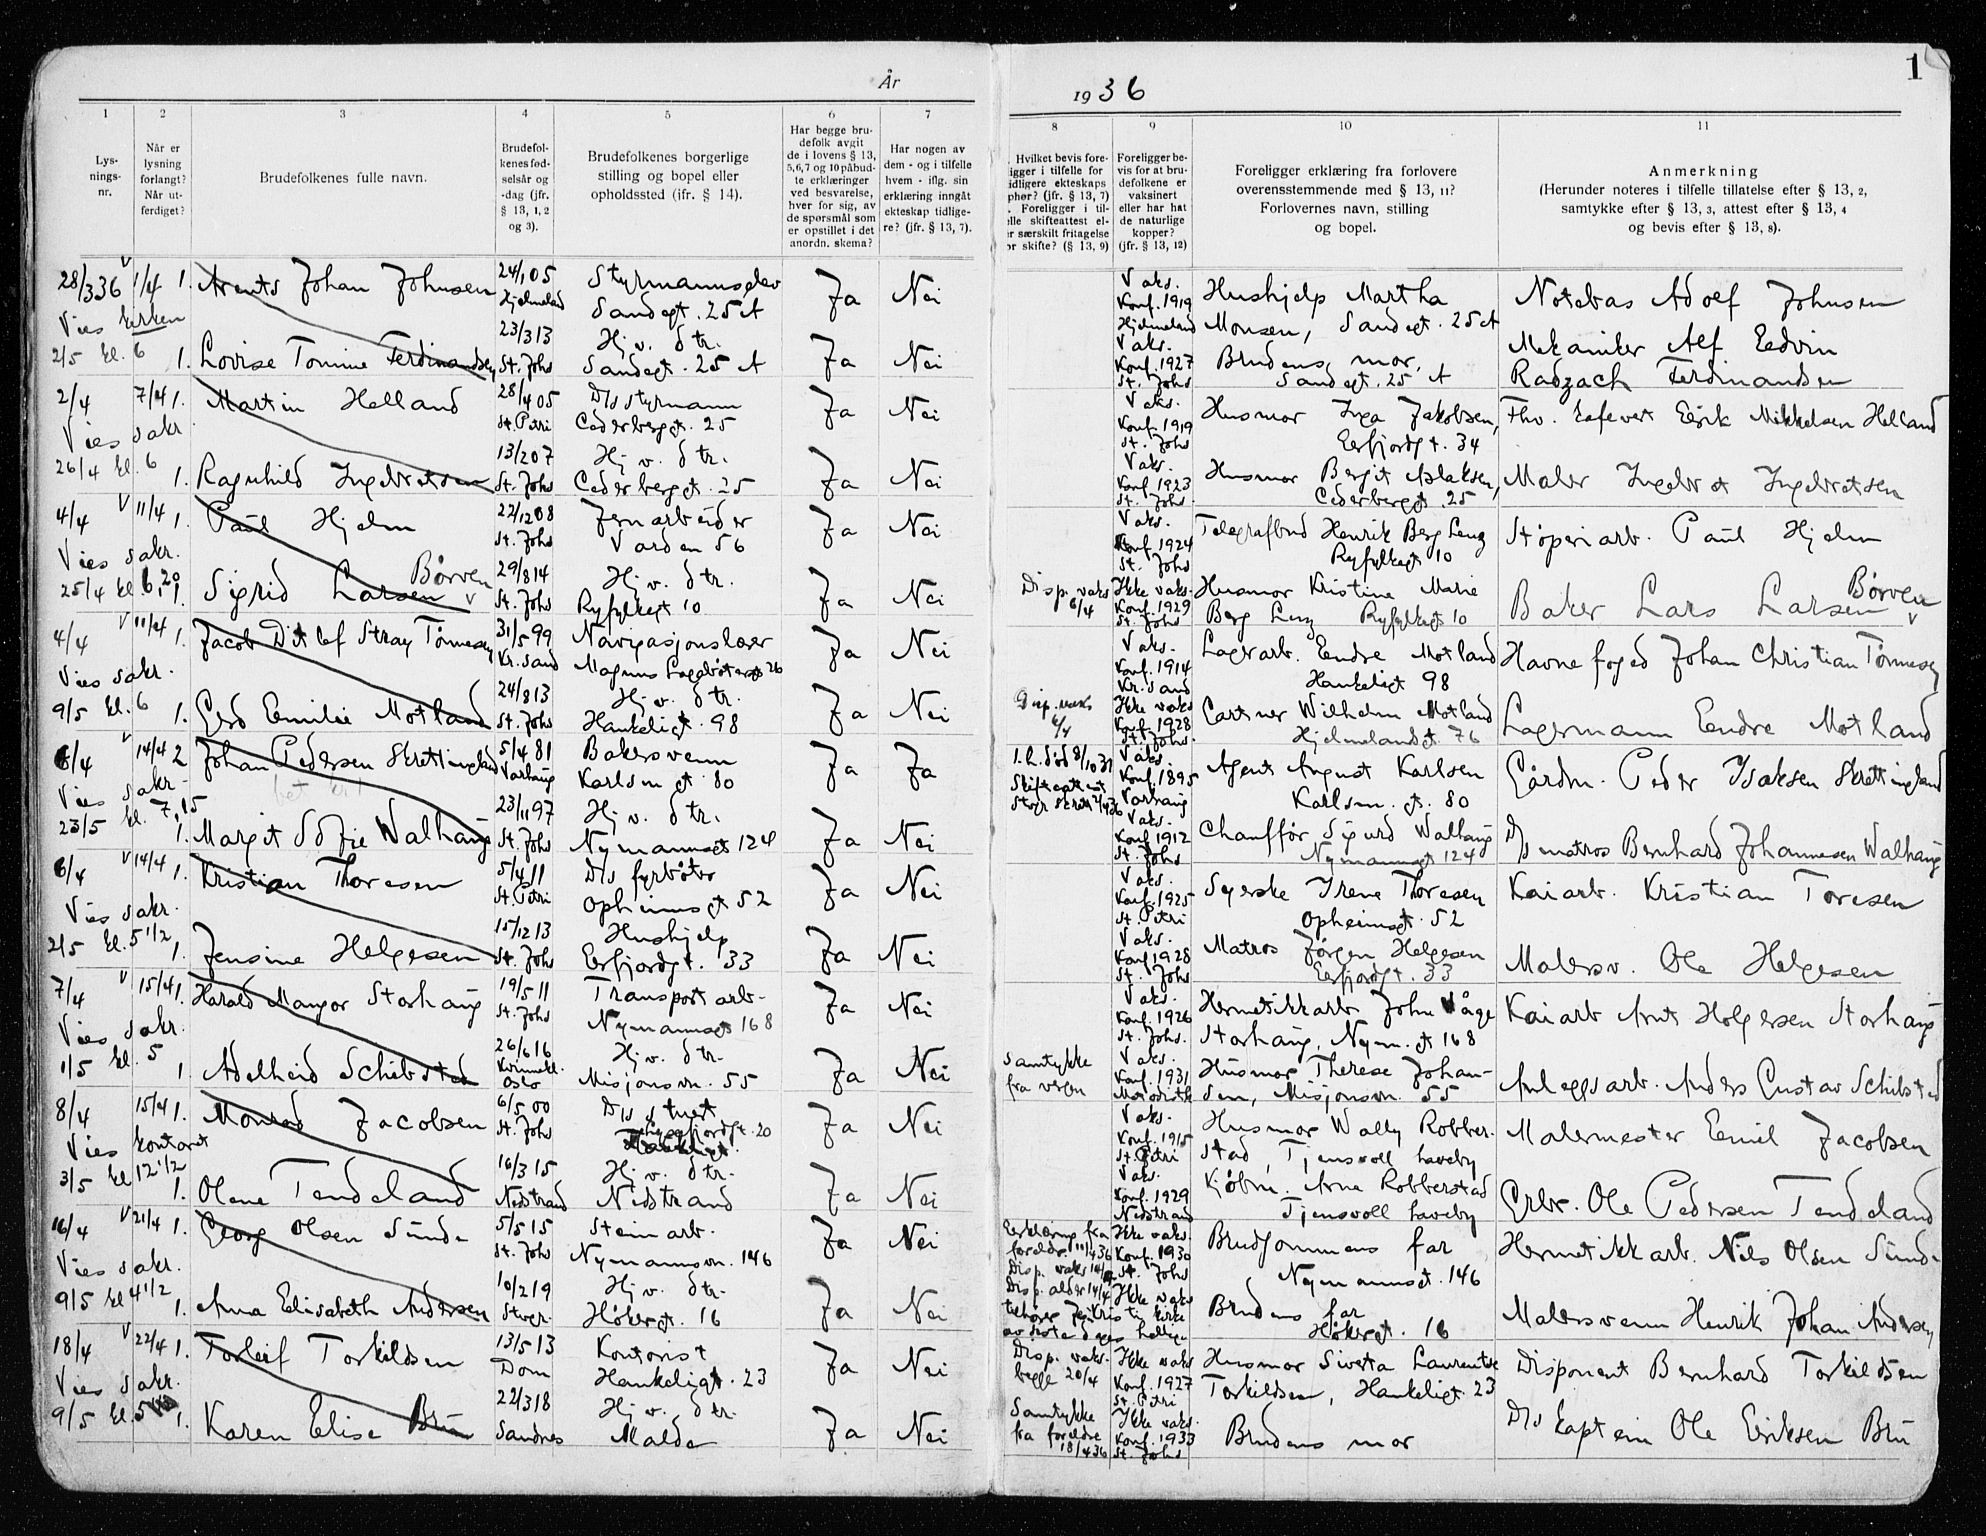 1
År
19 36
1
2
3
4
5
6
7
8
9
10
11
Lys-
nings-
nr.
Når er
lysning
forlangt?
Når ut-
ferdiget?
Brudefolkenes fulle navn.
Brudefol-
kenes fød-
selsår og
-dag (jfr.
§ 13, 1, 2
og 3).
Brudefolkenes borgerlige
stilling og bopel eller
opholdssted (ifr. § 14).
Har begge bru-
defolk avgit
de i lovens § 13,
5,6,7 og 10 påbud-
te erklæringer
ved besvarelse,
hver for sig, av
de spørsmål som
er opstillet i det
anordn. skema?
Har nogen av
dem - og i tilfelle
hvem - iflg. sin
erklæring inngått
ekteskap tidlige-
re? (jfr. § 13, 7).
Hvilket bevis fore-
igger i tilfelle for
idligere ekteskaps
phør? (jfr. § 13, 7)
. Foreligger i til-
elle skifteattest el-
r særskilt fritagelse
or skifte? (§ 13, 9)
Foreligger be-
vis for at bru-
defolkene er
vaksinert
eller har hat
de naturlige
kopper?
(jfr. § 13, 12)
Foreligger erklæring fra forlovere
overensstemmende med § 13, 11?
Forlovernes navn, stilling
og bopel.
Anmerkning
(Herunder noteres i tilfelle tillatelse efter § 13, 2,
samtykke efter § 13, 3, attest efter § 13, 4
og bevis efter § 13, 8).
28/3 36 v 1/4 1. Arents Johan Johnsen 24/1 05 Hjelmeland Styrmannselev Sandegt. 25 A Ja Nei Vaks. Konf. 1919 Hjelmeland Hushjelp Martha Monsen, Sandegt. 25 A Notebas Adolf Johnsen
Vies kirken
2/5 kl. 6 1. Lovise Tomine Ferdinandsen 23/3 13 St. Johs Hj.v. dtr. Sandegt. 25 A Ja Nei Vaks. Konf. 1927 St. Johs Brudens mor, Sandegt. 25 A Mekaniker Alf Edvin Radzach Ferdinandsen
2/4 7/4 1. Martin Helland 28/4 05 St. Petri D/s styrmann Cederbergt. 25 Ja Nei Vaks. Konf. 1919 St. Johs Husmor Inga Jakobsen, Erfjordgt. 34 Fhv. kafevert Eirik Mikkelsen Helland
Vies sakr
26/4 kl. 6 1. Ragnhild Ingebretsen 13/2 07 St. Johs Hj.v. dtr. Cederbergt. 25 Ja Nei Vaks. Konf. 1923 St. Johs Husmor Bergit Aslaksen, Cederbergt. 25 Maler Ingebret Ingebretsen
4/4 v 11/4 1. Paul Hjelm 22/12 08 St. Johs Jernarbeider Varden 56 Ja Nei Vaks. Konf. 1924 St. Johs Telegrafbud Henrik Berg Lenz Ryfylkegt 10 Støperiarb. Paul Hjelm
Vies sakr.
25/4 kl. 6,20 1. Sigrid Larsen v Børven 29/8 14 St. Johs Hj.v. dtr. Ryfylkegt 10 Ja Nei Disp. vaks 6/4 Ikke vaks. Konf. 1929 St. Johs Husmor Kristine Marie Berg Lenz Ryfylkegt 10 Baker Lars Larsen v Børven
4/4 v 11/4 1. Jacob Ditlef Stray Tønnesen 31/5 99 Kr. sand Navigasjonslærer Magnus Lagabøtersgt 26 Ja Nei Vaks. Konf. 1914 Kr. sand Lagerarb. Endre Motland Hankeligt 98 Havnefoged Johan Christian Tønnesen
Vies sakr.
9/5 kl. 6 1. Gerd Emilie Motland 24/8 13 St. Johs Hj.v. dtr. Hankeligt. 98 Ja Nei Disp. vaks 6/4 Ikke vaks Konf. 1928 St. Johs. Gartner Wilhelm Motland Hjelmelandsgt. 76 Lagermann Endre Motland
6/4 v 14/4 2 Johan Pedersen Skrettingland 5/4 81 Varhaug Bakersvenn Karlsm. gt. 80 Ja Ja 1. h. død 8/10 31 Skifteattest Stvgr. skrett 2/4 36 Vaks Konf. 1895 Varhaug Agent August Karlsen Karlsm. gt. 80 Gårdm. Peder Isaksen Skrettingland
Vies sakr.
23/5 kl. 7,15 1. Margit Sofie Walhaug 23/11 97 St. Johs Hj.v. dtr. Nymannsgt 124 Ja Nei Vaks. Konf. 1912 St. Johs Chauffør Sigurd Walhaug Nymannsgt 124 D/s matros Bernhard Johannesen Walhaug
6/4 v 14/4 1. Kristian Thoresen 5/4 11 St. Petri D/s fyrbøter Opheimsgt 52 Ja Nei Vaks. Konf. 1925 St. Petri Syerske Irene Thoresen Opheimsgt. 52 Kaiarb. Kristian Toresen
Vies sakr.
2/5 kl. 5 1/2 1. Jensine Helgesen 15/12 13 St. Johs Hushjelp Erfjordgt. 33 Ja Nei Vaks. Konf. 1928 St. Johs Matros Jørgen Helgesen Erfjordgt. 33 Malersv. Ole Helgesen
7/4 v 15/4 1. Harald Mangor Storhaug 19/5 11 St. Johs Transportarb. Nymannsgt 168 Ja Nei Vaks. Konf. 1926 St. Johs. Hermetikkarb John Våge Storhaug, Nym. gt 168 Kaiarb Arnt Holgersen Storhaug
Vies sakr.
1/5 kl. 5 1 Adelheid Schibsted 26/6 16 Oslo Hj.v. dtr. Misjonsvn. 55 Ja Nei Samtykke fra vergen Vaks. Konf. 1931 Husmor Therese Johan- sen, Misjonsvn. 55 Anleggsarb. Anders Gustav Schibsted
8/4 15/4 1. Monrad Jacobsen 6/5 00 St. Johs D/s stuert Ja Nei Vaks. Konf. 1915 St. Petri Husmor Wally Robber- stad, Tjensvoll haveby Malermester Emil Jacobsen
Vies kontoret
3/5 kl 12 1/2 1. Olene Tendeland 16/3 15 Nedstrand Hj.v. dtr. Nedstrand Ja Nei Vaks. Konf. 1929 Nedstrand Kjøbm. Arne Robberstad Tjensvoll haveby Grbr. Ole Pedersen Tendeland
16/4 v 21/4 1. Georg Olsen Sunde 5/5 15 St. Johs Steinarb. Nymannsvn. 146 Ja Nei Erklæring fra foreldre 11/4 36 Disp. vaks 14/4 Ikke vaks. Konf. 1930 St. Johs Brudgommens far Nymannsgt. 146 Hermetikkarb. Nils Olsen Sunde
Vies sakr.
9/5 kl 4 1/2 1. Anna Elisabeth Andersen 10/2 19 Stvgr. Hj.v. dtr. Høkergt. 16 Ja Nei Disp. alder 14/4 tilhører Jesu Kristi kirke av siste dages hellige Ikke vaks Brudens far Høkergt. 16 Malersvenn Henrik Johan Andersen
18/4 v 22/4 1. Torleif Torkildsen 13/5 13 Dom Kontorist Hankeligt. 23 Ja Nei Disp. vaks. begge 20/4 Ikke vaks Konf. 1927 St. Petri Husmor Siverta Laurentse Torkildsen, Hankeligt. 23 Disponent Bernhard Torkildsen
Vies sakr.
9/5 kl. 5 1. Karen Elise Bru 22/3 18 Sandnes Hj.v. dtr. Malde Ja Nei Samtykke fra foreldre 18/4 36 Ikke vaks. Konf. 1933 St. Johs Brudens mor D/s kaptein Ole Eriksen Bru